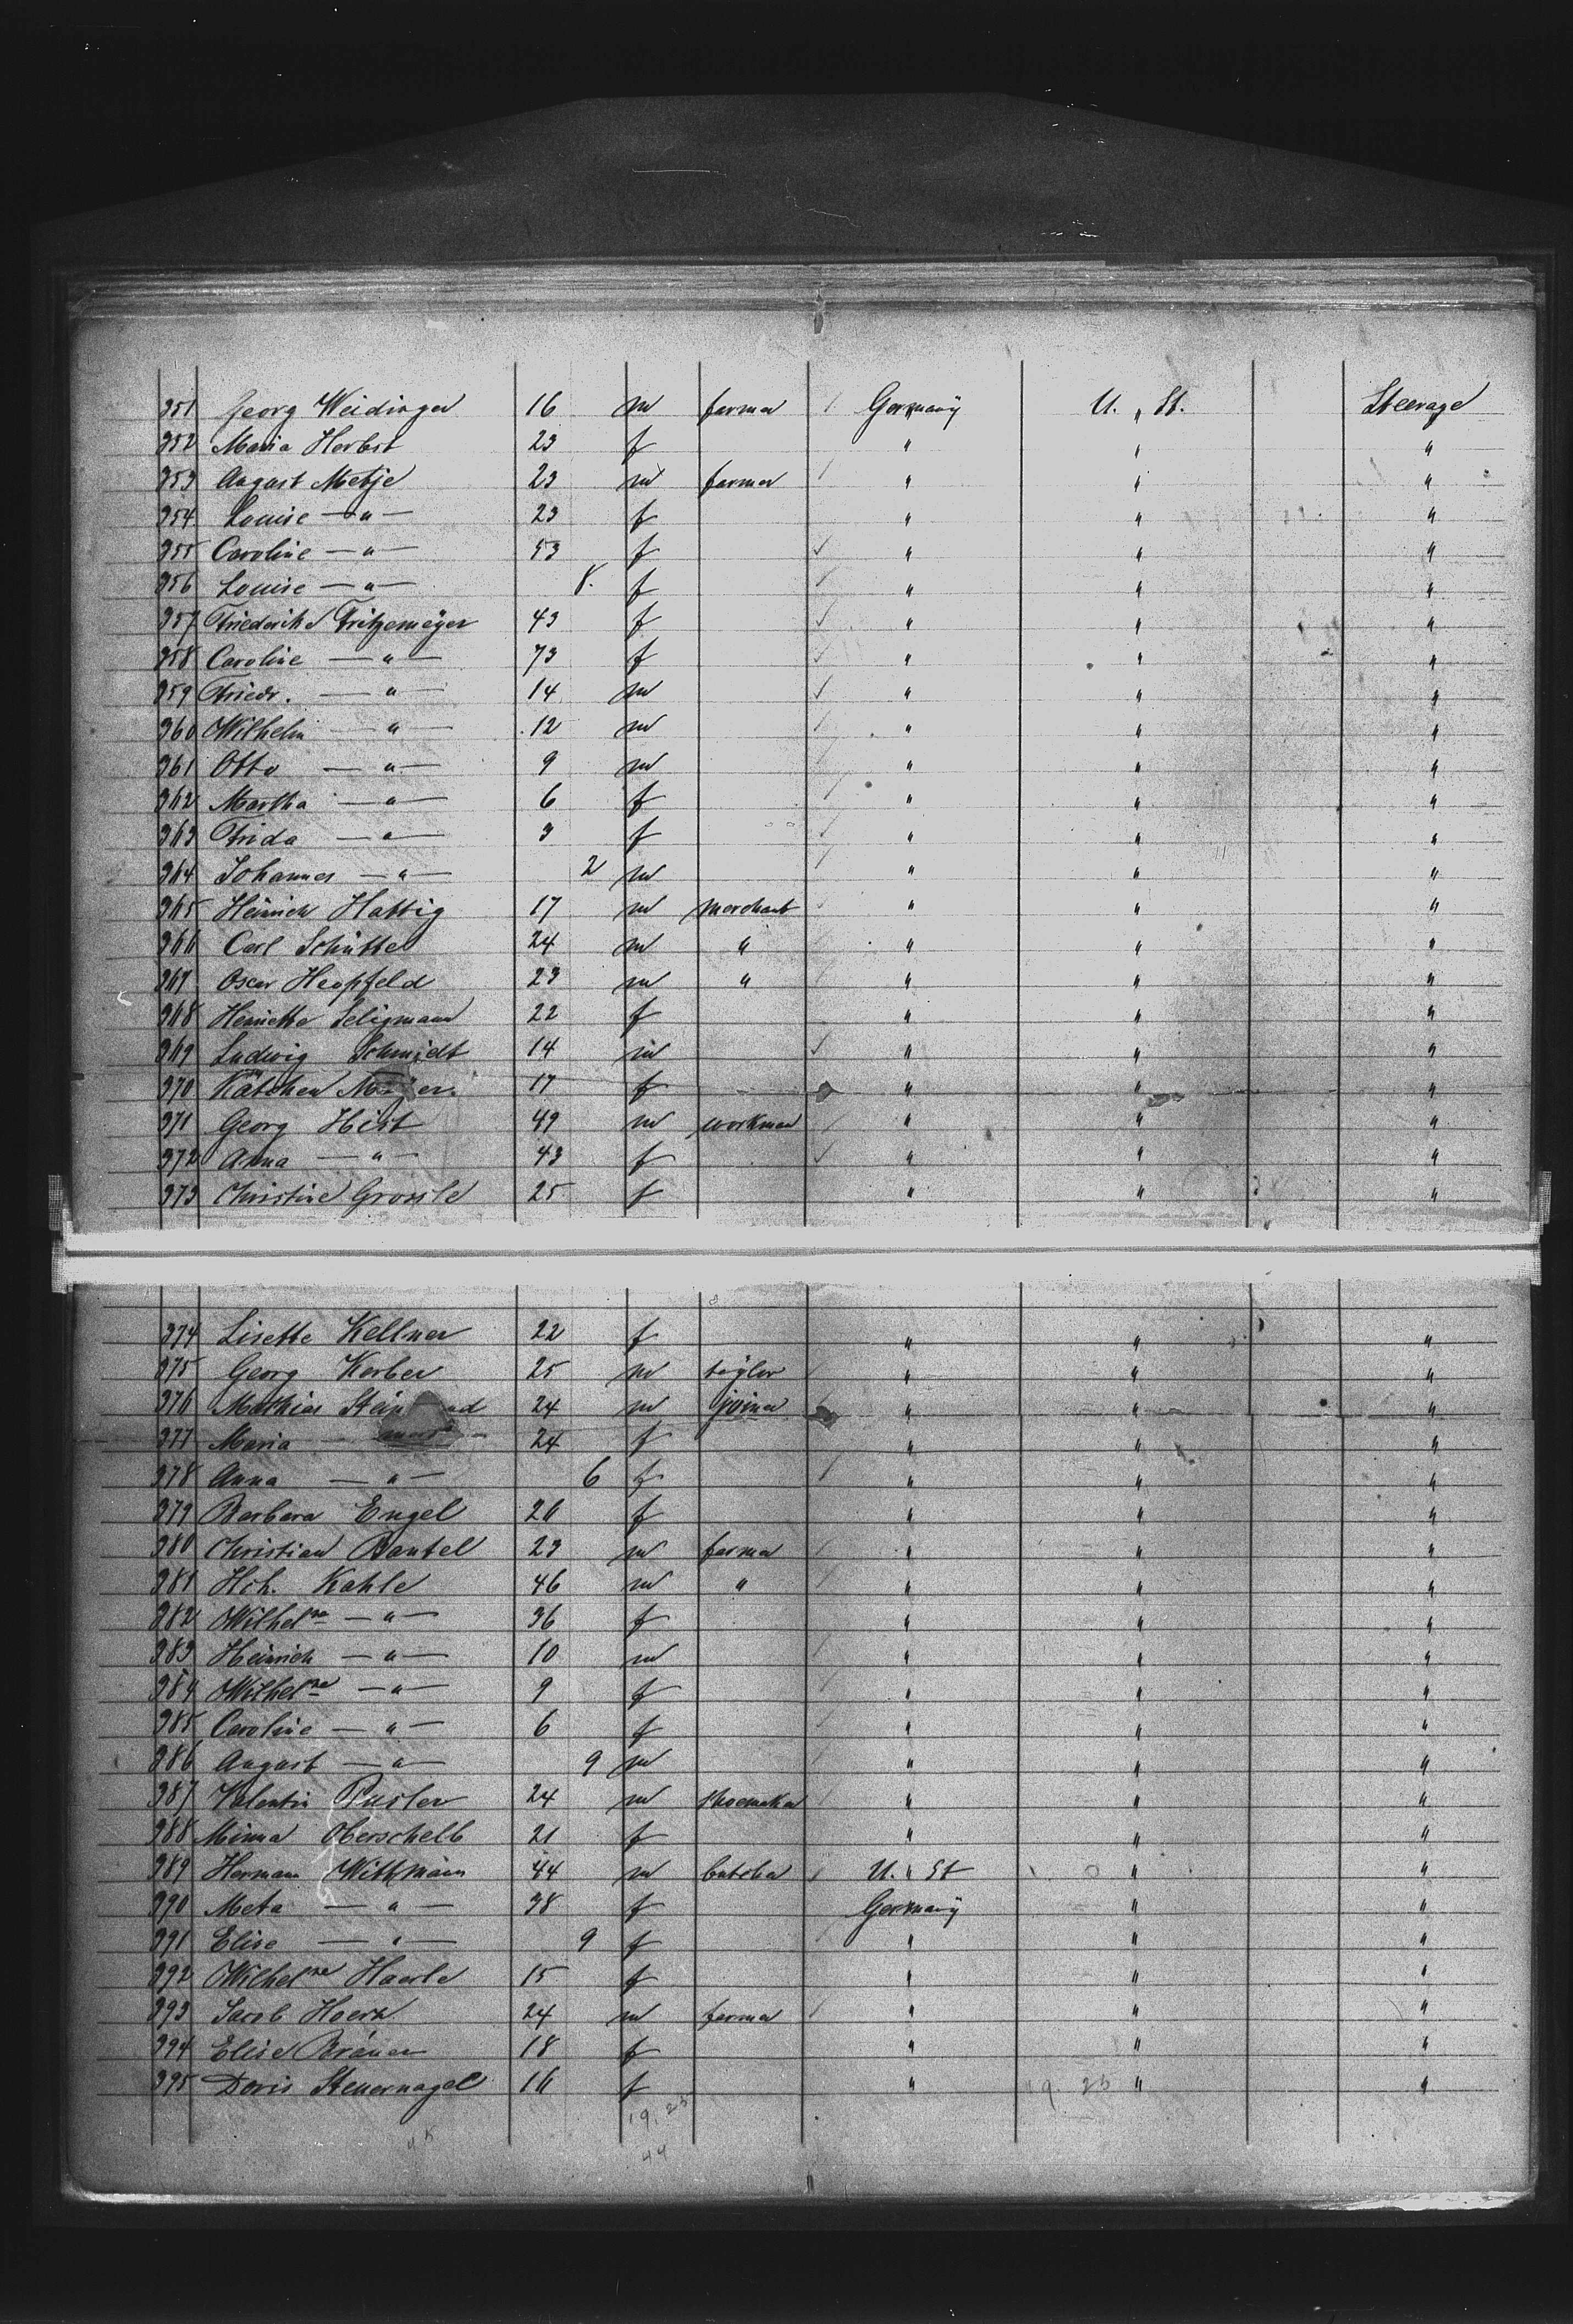 351 Georg Weidinger 16 m farmer Germany U. " St. Steerage
352 Maria Herbst 23 f " " "
353 August Metje 23 m farmer " " "
354 Louise — " — 23 f " " "
355 Caroline — " — 53 f " " "
356 Louise — " — 8. f " " "
357 Friederike Fritzemeÿer 43 f " " "
358 Caroline — " — 73 f " " "
359 Friedr. — " — 14 m " " "
360 Wilhelm — " — 12 m " " "
361 Otto — " — 9 m " " "
362 Martha — " — 6 f " " "
363 Frida — " — 3 f " " "
364 Johannes — " — 2 m " " "
365 Heinrich Hattig 17 m merchant " " "
366 Carl Schütte 24 m " " " "
367 Oscar Heopfeld 23 m " " " "
368 Henriette Seligmann 22 f " " "
369 Ludwig Schmidt 14 m " " "
370 Kätchen 17 f " " "
371 Georg Hirt 49 m workman " " "
372 Anna — " — 43 f " " "
373 Christine Grossle 25 f " " "
374 Lisette Kellner 22 f " " "
375 Georg Korber 25 m taÿlor " " "
376 Mathias Stein nd 24 m joiner " " "
377 Maria 24 f " " "
378 Anna — " — 6 f " " "
379 Barbara Engel 26 f " " "
380 Christian Bantel 23 m farmer " " "
381 Hch. Kahle 46 m " " " "
382 Wilhelne — " — 36 f " " "
383 Heinrich — " — 10 m " " "
384 Wilhelne — " — 9 f " " "
385 Caroline — " — 6 f " " "
386 August — " — 9 m " " "
387 Valentin Pusler 24 m shoemaker " " "
388 Minna Oberschelb 21 f " " "
389 Hermann Wittmann 44 m butcher U. " St " "
390 Meta — " — 38 f Germanÿ " "
391 Elise — " — 9 f " " "
392 Wilhelne Haerle 15 f " " "
393 Jacob Hoerz 24 m farmer " " "
394 Elise Bräuer 18 f " " "
395 Doris Steuernagel 16 f " " "
19. 25
19. 25
45
44